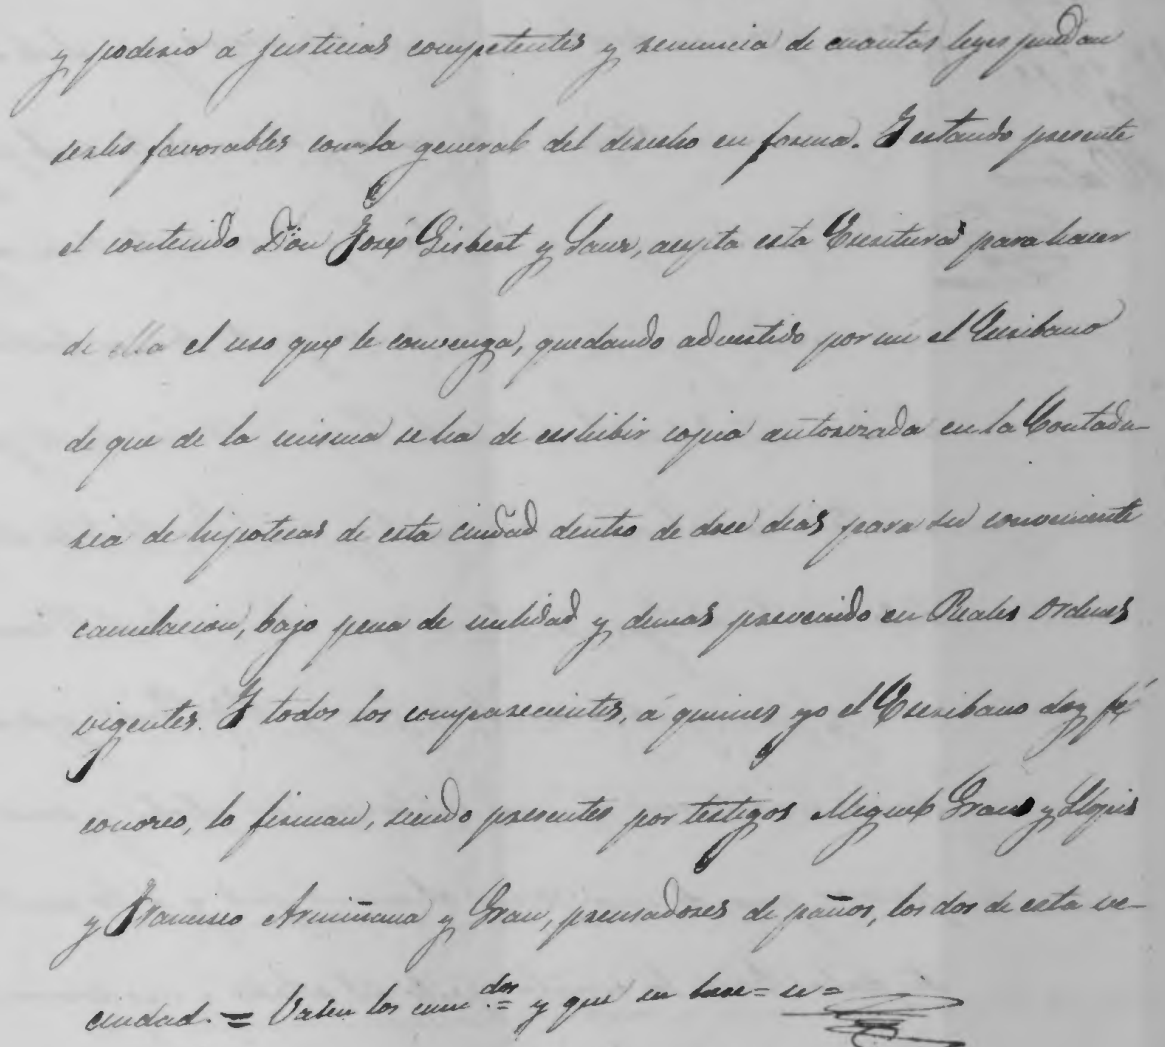 y poderio á justicias competentes y renuncia de cuantas leyes puedan
serles favorables con la general del derecho en forma. Y estando presente
el contenido Don José Gisbert y Sanz, acepta esta Escritura para hacer
de ella el uso que le convenga, quedando advertido por mi el Escribano
de que de la misma se ha de exhibir copia autorizada en la Contadu-
ria de hipotecas de esta ciudad dentro de doce dias para su conveniente
cancelacion, bajo pena de nulidad y demas prevenido en Reales ordenes
vigentes. Y todos los comparecientes, á quienes yo el Escribano doy fé
conozco, lo firman, siendo presentes por testigos Miguel Grau y Llopis
y Francisco Armiñana y Grau, prensadores de paños, los dos de esta ve-
cindad. = Valen los enm.dos = y que se